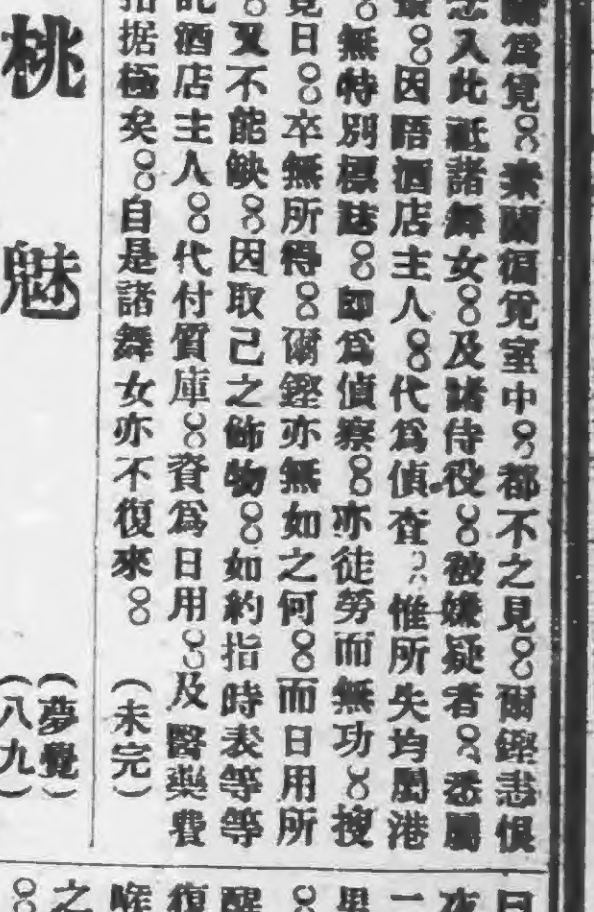 蘭爲覓。素蘭徧覓室中。都不之見。爾鏗恚恨
念入此祗諸舞女。及諸侍役。被嫌疑者。悉屬
因語酒店主人。代爲偵查。惟所失均屬港
無特別標誌。卽爲偵察。亦徒勞而無功。搜
竟日。卒無所得。爾鏗亦無如之何。而日用所
又不能缺。因取己之飾物。如約指時表等等
託酒店主人。代付質庫。資爲日用。及醫藥費
拮据極矣。自是諸舞女亦不復來。(未完)
桃魅
(夢覺)
(八九)